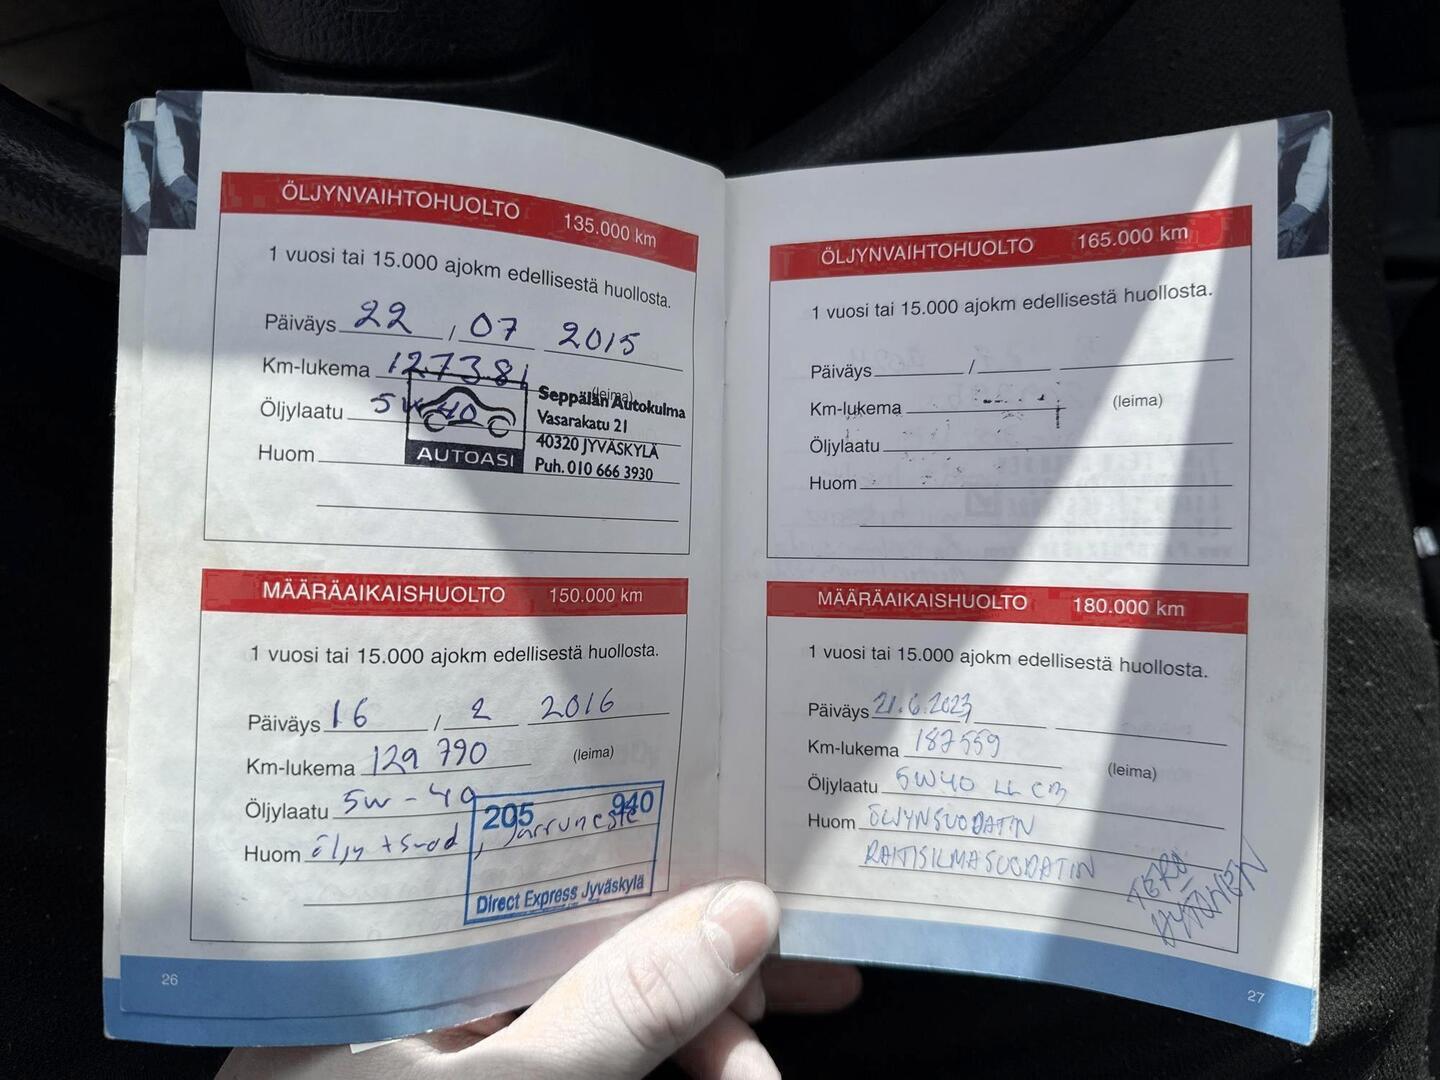 ÖLJYNVAIHTOHUOLTO 135.000 km
1 vuosi tai 15.000 ajokm edellisestä huollosta.
Päiväys 22 / 07 2015
Km-lukema 127381 (leima)
Öljylaatu 5w 40
Huom
AUTOASI
Seppälän Autokulma
Vasarakatu 21
40320 JYVÄSKYLÄ
Puh. 010 666 3930
MÄÄRÄAIKAISHUOLTO 150.000 km
1 vuosi tai 15.000 ajokm edellisestä huollosta.
Päiväys 16 / 2 2016
Km-lukema 129 790 (leima)
Öljylaatu 5w - 40
Huom öljy + suod, Jarruneste
205 940
Direct Express Jyväskylä
26
ÖLJYNVAIHTOHUOLTO 165.000 km
1 vuosi tai 15.000 ajokm edellisestä huollosta.
Päiväys /
Km-lukema (leima)
Öljylaatu
Huom
MÄÄRÄAIKAISHUOLTO 180.000 km
1 vuosi tai 15.000 ajokm edellisestä huollosta.
Päiväys 21.6.2023
Km-lukema 187559 (leima)
Öljylaatu 5W40 LL
Huom ÖLJYNSUODATIN
RAITISILMASUODATIN
TERO
27